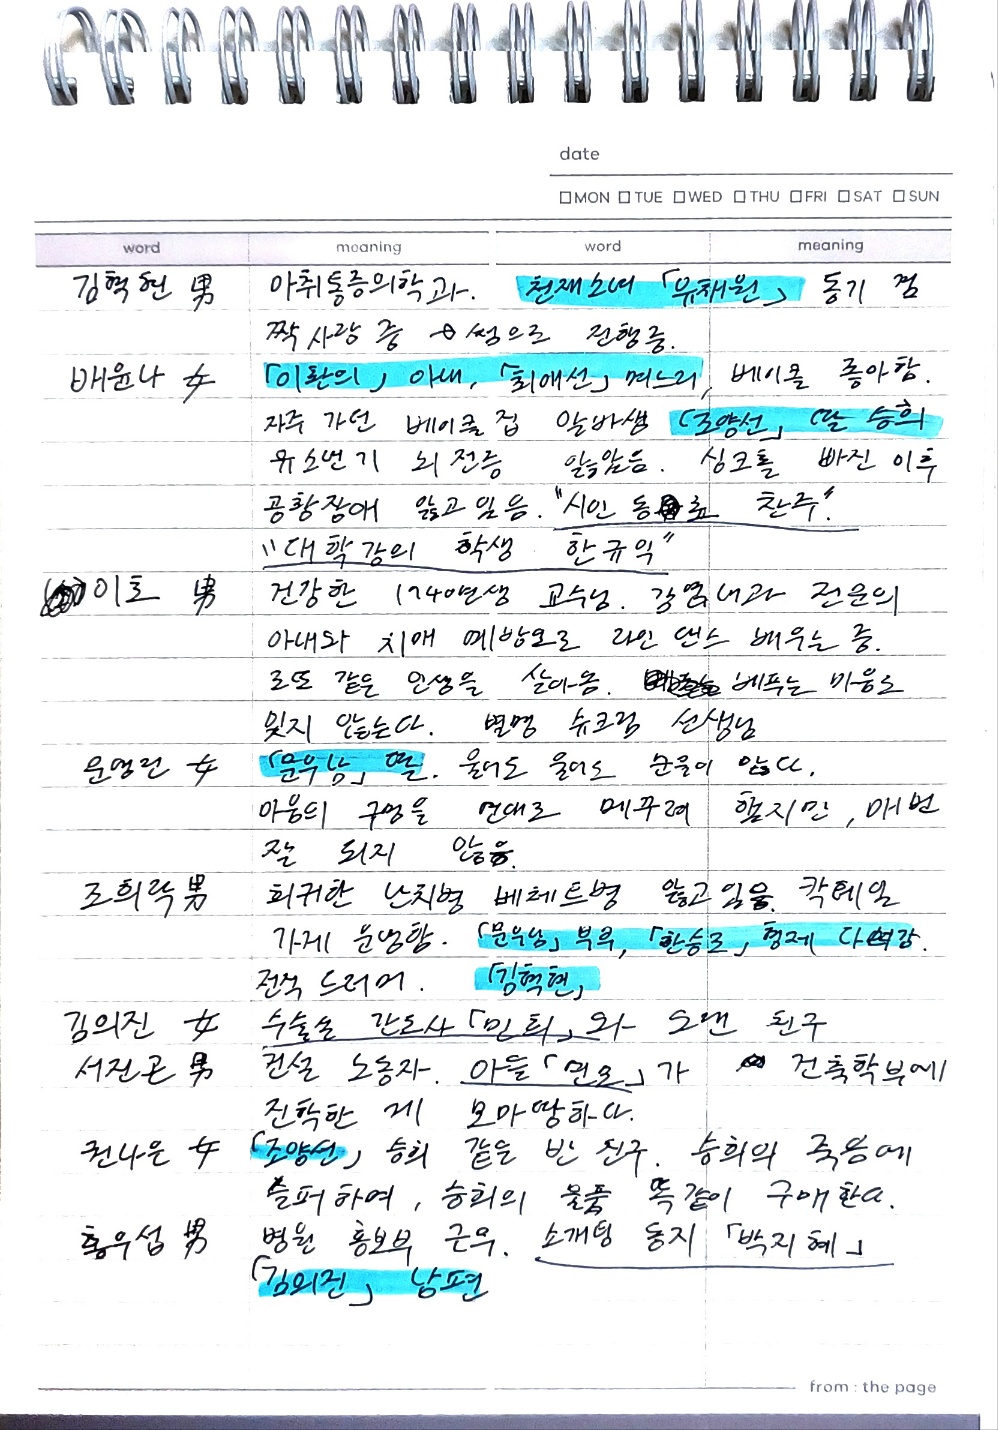 date
□MON □TUE □WED □THU □FRI □SAT □SUN
word meaning word meaning
김혁현 男 마취통증의학과. 천재소녀 「유채원」 동기 겸
짝사랑 중 → 썸으로 진행중.
배윤나 女 「이환의」 아내, 「최애선」 며느리, 베이글 좋아함.
자주 가던 베이글집 알바생 「조양선」 딸 승희
유소년기 뇌전증 앓았음. 싱크홀 빠진 이후
공황장애 앓고있음. "시인 동료 찬주".
"대학강의 학생 한규익"
이호 男 건강한 1940년생 교수님. 감염내과 전문의
아내와 치매 예방으로 라인댄스 배우는 중.
로또 같은 인생을 살아옴. 베푸는 마음도
잊지 않는다. 별명 슈크림 선생님
문영린 女 「문우남」 딸. 울어도 울어도 눈물이 안
마음의 구멍을 연대로 메꾸려 했지만, 매번
잘 되지 않음.
조희락 男 희귀한 난치병 베체트병 앓고있음. 칵테일
가게 운영함. 「문우남」 부부, 「한승조」 형제
전직 드러머. 「김혁현」
김의진 女 수술실 간호사 「민희」와 오랜 친구
서진곤 男 건설 노동자. 아들 「연모」가 건축학부에
진학한 게 못마땅하다.
권나은 女 「조양선」 승희 같은 반 친구. 승희의 죽음에
슬퍼하여, 승희의 물품 똑같이 구매한다.
홍우섭 男 병원 홍보부 근무. 소개팅 동지 「박지혜」
「김의진」 남편
from : the page